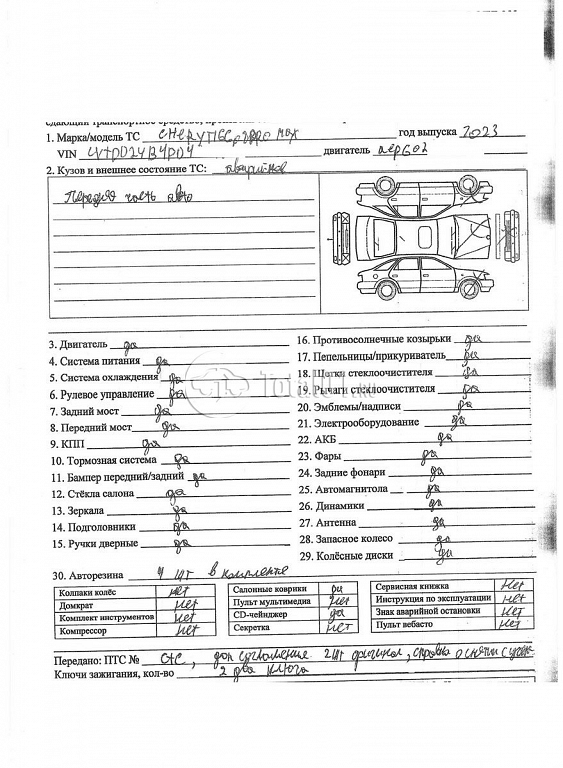 1. Марка/модель ТС CHERYTIGG07PRO MAX год выпуска 2023
VIN LVTDD24B4PD4 двигатель
2. Кузов и внешнее состояние ТС: аварийное
Передняя часть авто
3. Двигатель да
4. Система питания да
5. Система охлаждения да
6. Рулевое управление да
7. Задний мост да
8. Передний мост да
9. КПП да
10. Тормозная система да
11. Бампер передний/задний да
12. Стёкла салона да
13. Зеркала да
14. Подголовники да
15. Ручки дверные да
16. Противосолнечные козырьки да
17. Пепельницы/прикуриватель да
18. Щетки стеклоочистителя да
19. Рычаги стеклоочистителя да
20. Эмблемы/надписи да
21. Электрооборудование да
22. АКБ да
23. Фары да
24. Задние фонари да
25. Автомагнитола да
26. Динамики да
27. Антенна да
28. Запасное колесо да
29. Колёсные диски да
30. Авторезина 4 шт в комплекте
Колпаки колёс нет
Домкрат нет
Комплект инструментов нет
Компрессор нет
Салонные коврики да
Пульт мультимедиа нет
CD-чейнджер да
Секретка нет
Сервисная книжка нет
Инструкция по эксплуатации нет
Знак аварийной остановки нет
Пульт вебасто нет
Передано: ПТС № СТС, доп соглашение 2шт оригинал, справка о снятии с учёта
Ключи зажигания, кол-во 2 два ключа